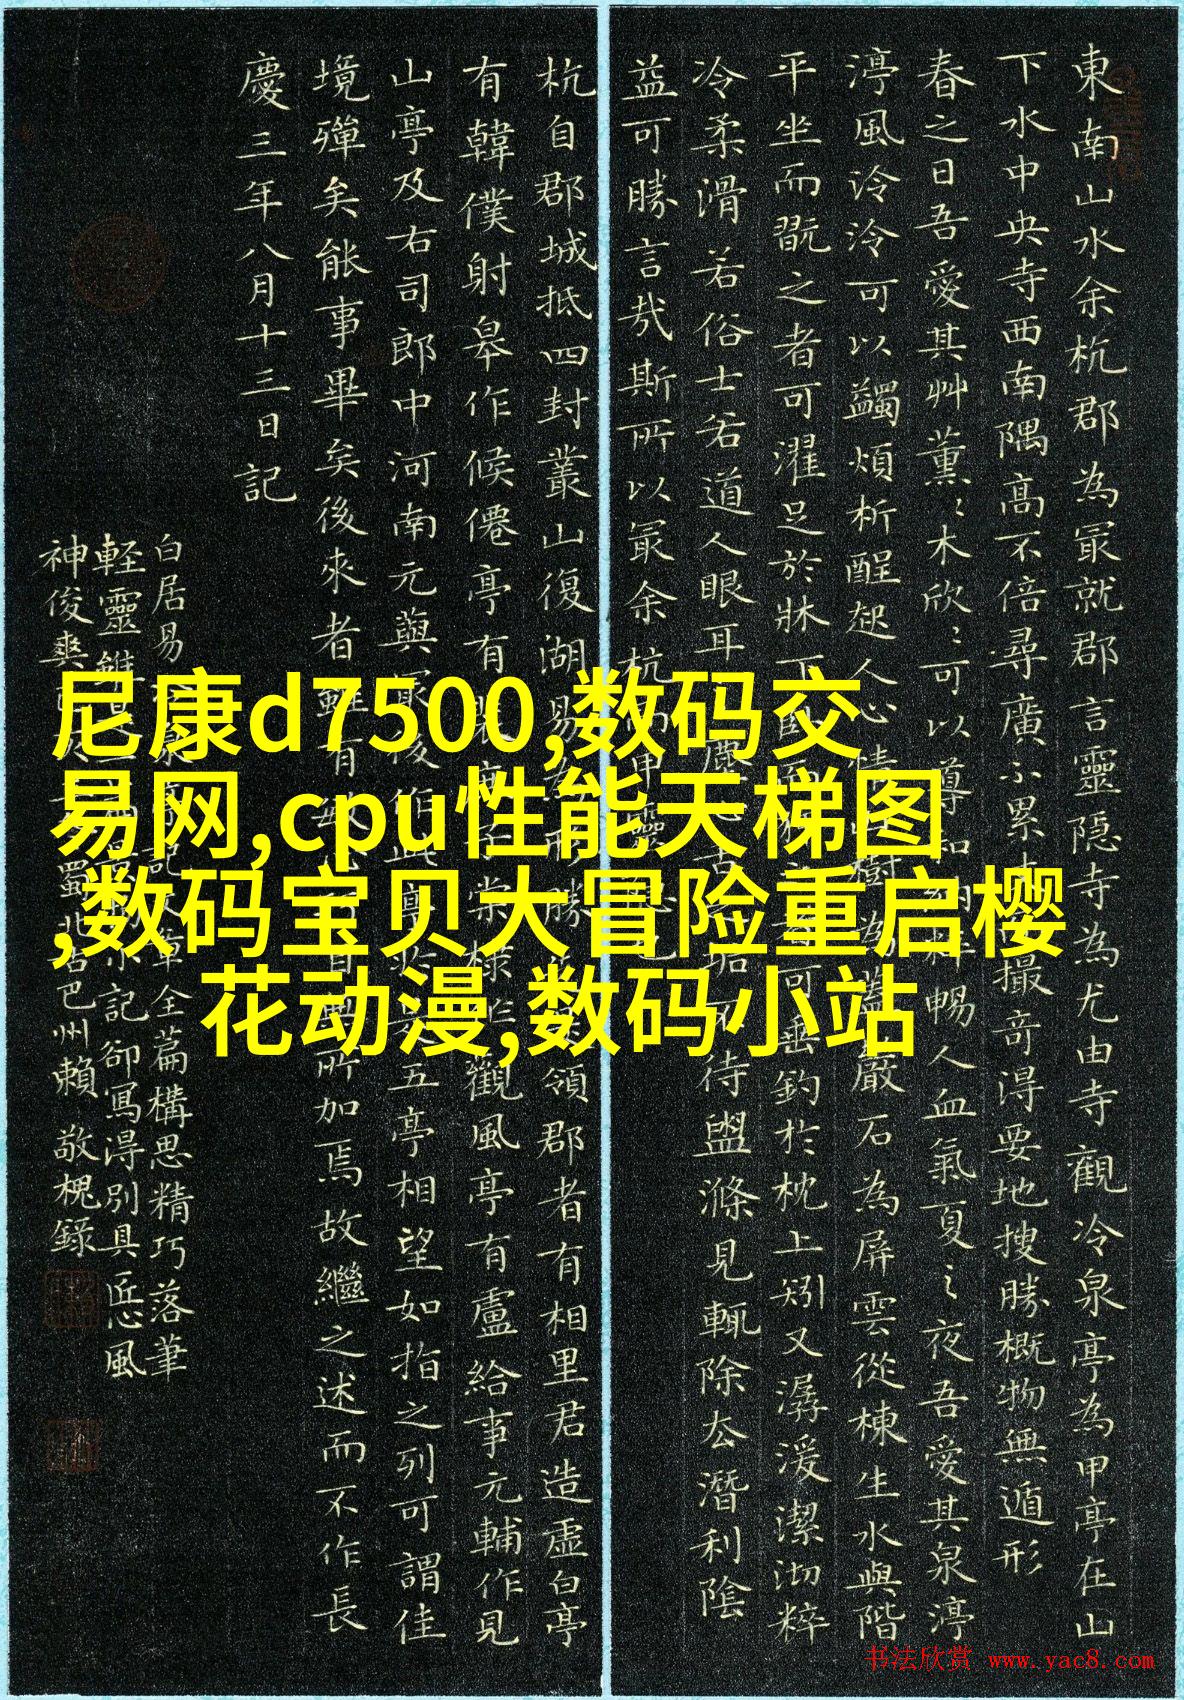 東南山水余杭郡為冣就郡言靈隱寺為尤由寺觀冷泉亭為甲亭在山
下水中央寺西南隅高不倍尋廣不累撮奇得要地搜勝概物無遁形
春之日吾愛其艸薰〻木欣〻可以導和納粹暢人血氣夏之夜吾愛其泉渟
渟風泠泠可以蠲煩析酲起人心情樹為蓋巖石為屏雲從棟生水與階
平坐而翫之者可濯足於牀下臥而可垂釣於枕上矧又潺湲潔沏粹
冷柔滑若俗士若道人眼耳塵舌垢不待盥滌見輒除去潛利陰
益可勝言哉斯所以冣余杭而甲靈隱也
杭自郡城抵四封叢山復湖易為形勝領郡者有相里君造虛白亭
有韓僕射皋作候僊亭有裴庶子棠棣作觀風亭有盧給事元輔作見
山亭及右司郎中河南元藇冣後作此亭於是五亭相望如指之列可謂佳
境殫矣能事畢矣後來者雖有敏心巧目無所加焉故繼之述而不作長
慶三年八月十三日記
白居易記文章全篇構思精巧落筆
軽靈雖是小記卻寫得別具匠心風
神俊爽蜀北古巴州賴敬槐錄
尼康d7500,数码交
易网,cpu性能天梯图
,数码宝贝大冒险重启樱
花动漫,数码小站
书法欣赏 www.yac8.com